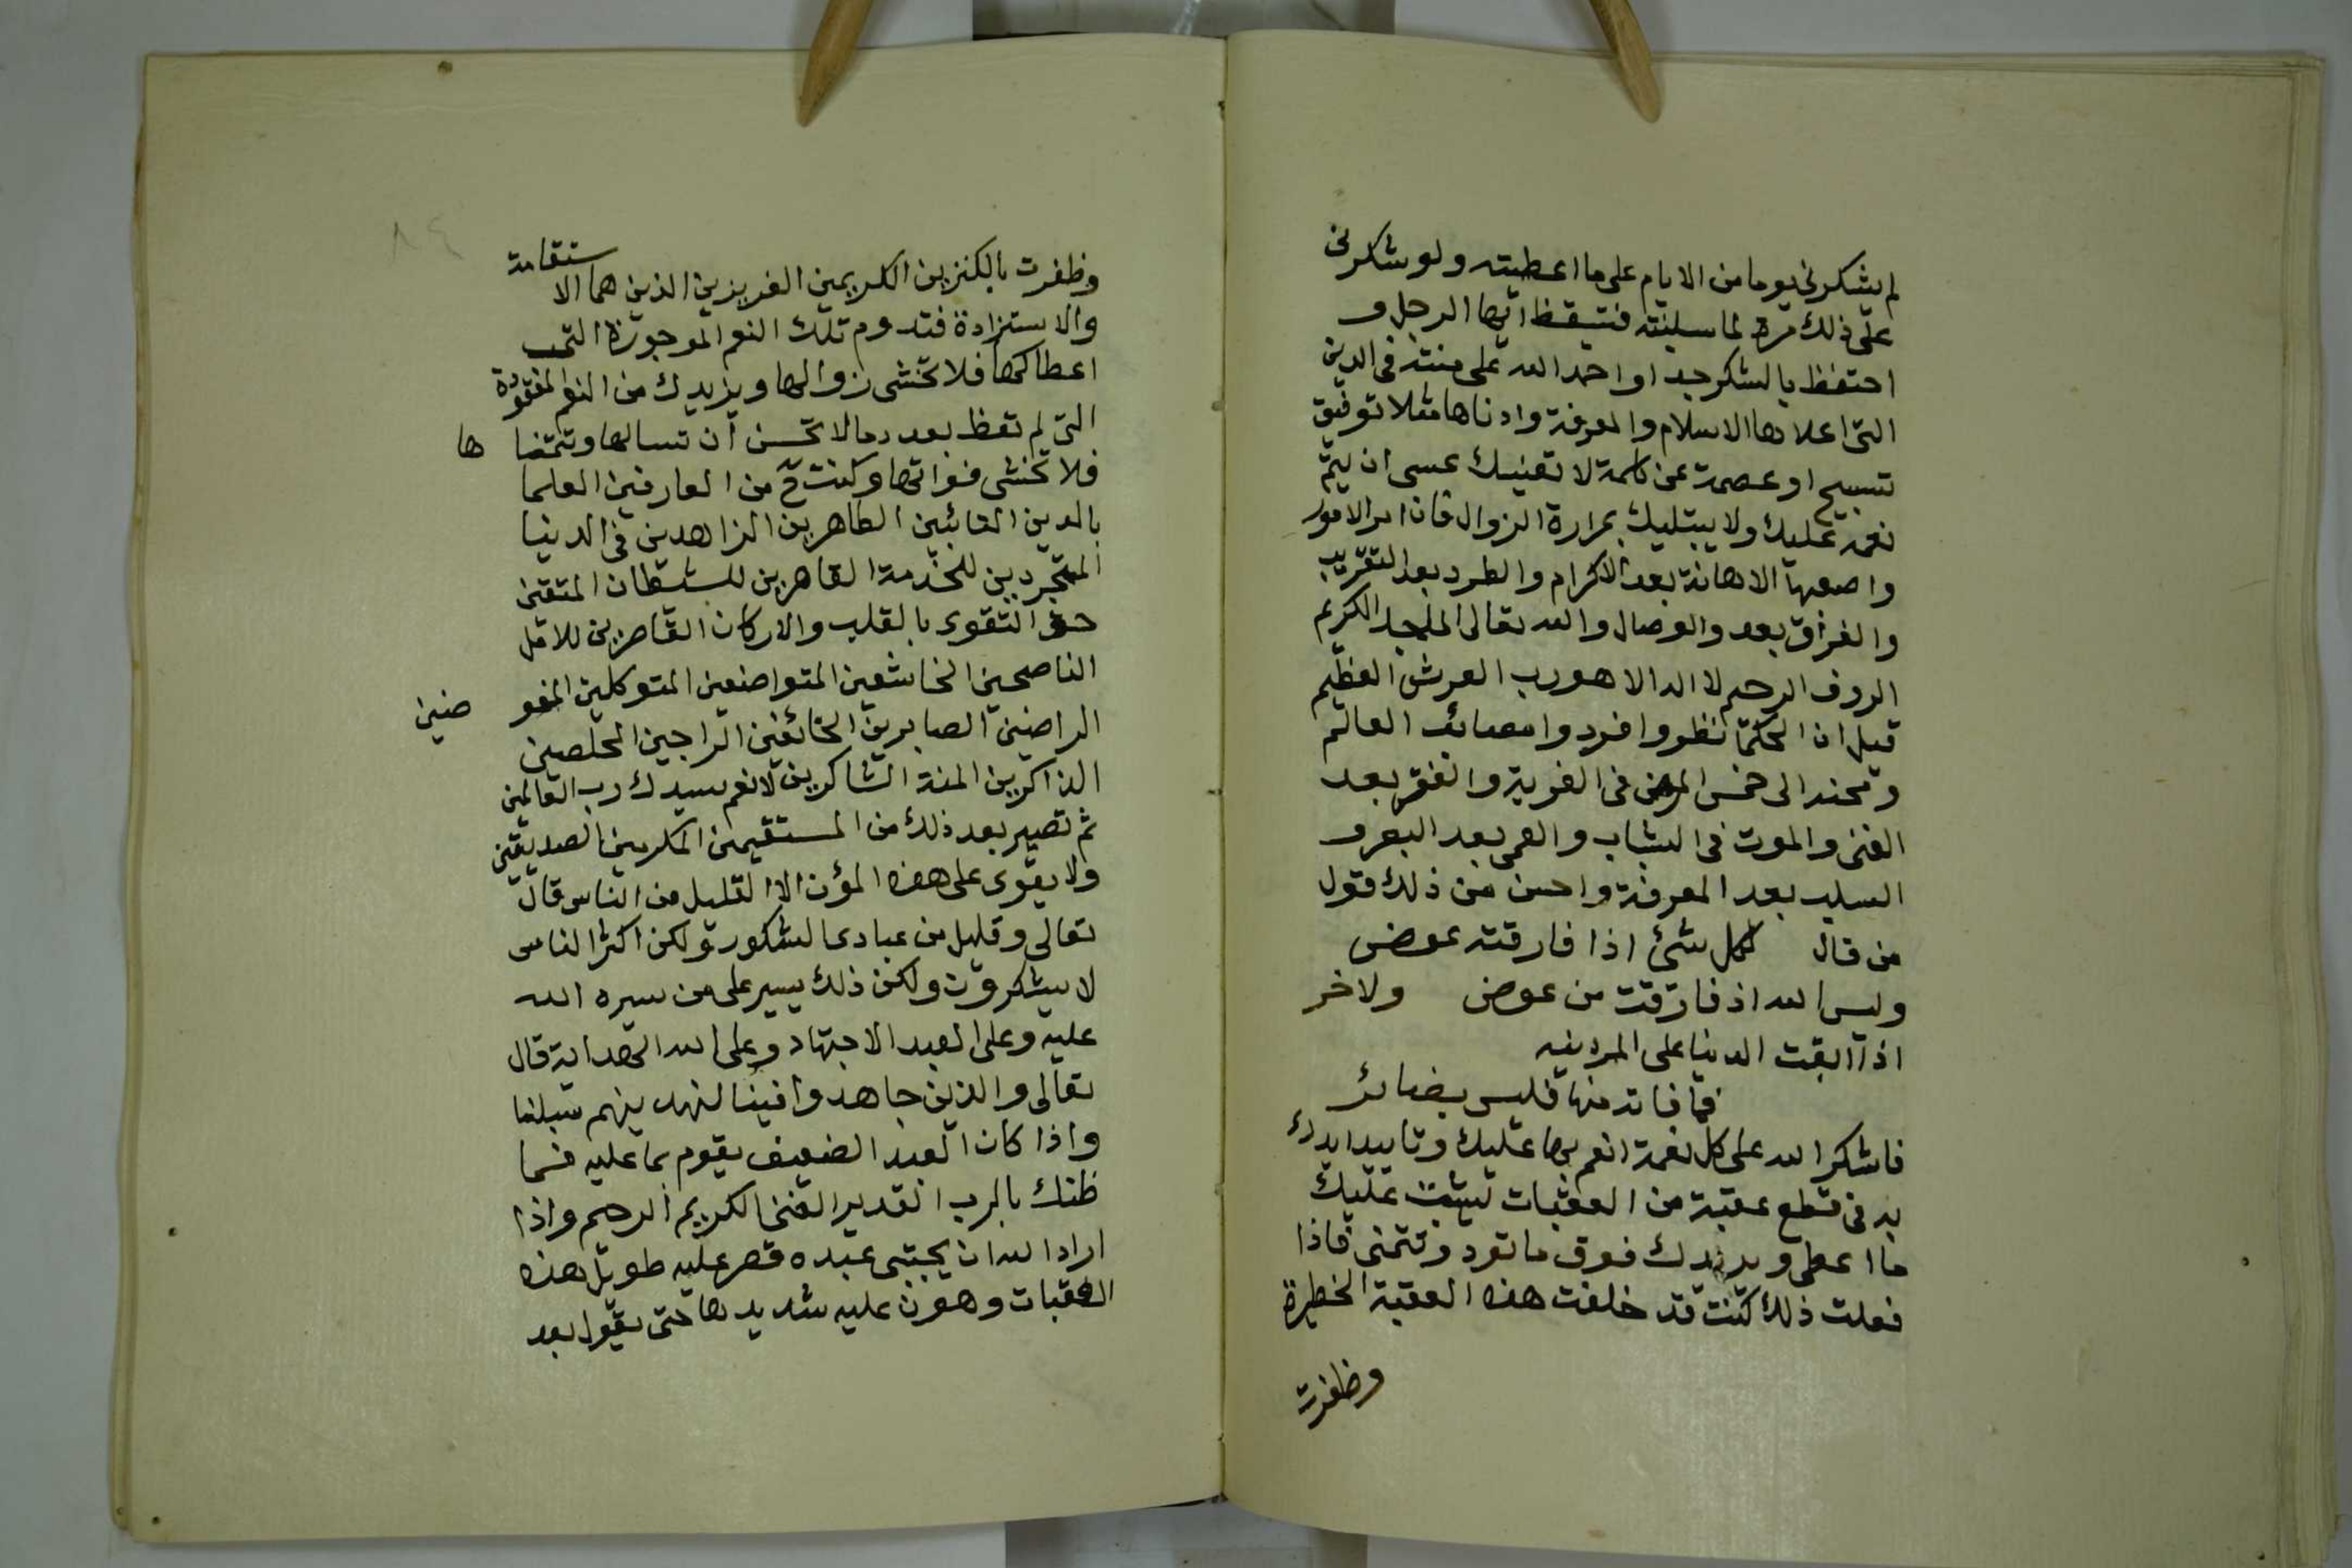 لم يشكرنى يوما من الايام على ما اعطيته ولو شكرنى
على ذلك مرة لما سلبته فتيقظ ايها الرجل و
احتفظ بالشكر جدا واحمد الله على مننه فى الدين
التى اعلاها الاسلام والمعرفة وادناها مثلا توفيق
تسبيح او عصمة عن كلمة لا تعنيك عسى ان يتم
نعمه عليك ولا يبتليك بمرارة الزوال فان امر الامور
واصعبها الاهانة بعد الاكرام والطرد بعد التقريب
والفراق بعد والوصال والله تعالى الماجد الكريم
الروف الرحيم لا اله الا هو رب العرش العظيم
قيل ان الحكما نظروا فردوا مصائب العالم
ومحنه الى خمس المرض فى الغربة والفقر بعد
الغنى والموت فى الشباب والعمى بعد البصر و
السلب بعد المعرفة واحسن من ذلك قول
من قال لكل شئ اذا فارقته عوض
وليس لله اذ فارقت من عوض ولاخر
اذا ابقت الدنيا على المرء دينه
فما فاته منها فليس بضائر
فاشكر الله على كل نعمة انعم بها عليك وتاييد ايدك
به فى قطع عقبة من العقبات ليثبت عليك
ما اعطى ويزيدك فوق ما تود وتتمنى فاذا
فعلت ذلك كنت قد خلفت هذه العقبة الخطيرة
وظفرت
٨٤
وظفرت بالكنزين الكريمين العزيزين الذين هما الاستقامة
والاستزادة فتدوم تلك النعم الموجودة التى
اعطاكها فلا تخشى زوالها ويزيدك من النعم المفقودة
التى لم تعط بعد دما لا تحسن ان تسالها وتتمناها
فلا تخشى فواتها وكنت ح من العارفين العلما
بالدين التائبين الطاهرين الزاهدين فى الدنيا
المتجردين للخدمة القاهرين للشيطان المتقين
حق التقوى بالقلب والاركان القاصرين للامل
الناصحين الخاشعين المتواضعين المتوكلين المفوضين
الراضين الصابرين الخائفين الراجين المخلصين
الذاكرين المنة الشاكرين لانعم سيدك رب العالمين
ثم تصير بعد ذلك من المستقيمين المكرمين الصديقين
ولا يقوى على هذه المؤن الا القليل من الناس قال
تعالى وقليل من عبادى الشكور ولكن اكثر الناس
لا يشكرون ولكن ذلك يسير على من يسره الله
عليه وعلى العبد الاجتهاد وعلى الله الهداية قال
تعالى والذين جاهدوا فينا لنهدينهم سبلنا
واذا كان العبد الضعيف يقوم بما عليه فما
ظنك بالرب القدير الغنى الكريم الرحيم واذا
اراد الله ان يجتبى عبده قصر عليه طويل هذه
العقبات وهون عليه شديدها حتى يقول بعد